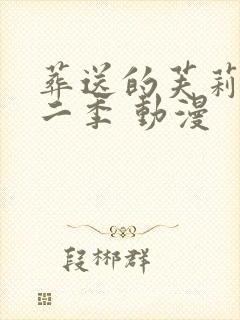 葬送的芙莉
二季 動漫
段郴群